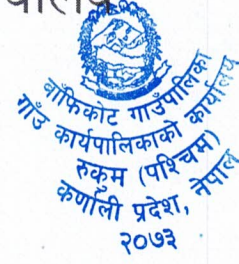 बाँफिकोट गाउँपालिका
गाउँ कार्यपालिकाको कार्यालय
रुकुम (पश्चिम)
कर्णाली प्रदेश, नेपाल
२०७३